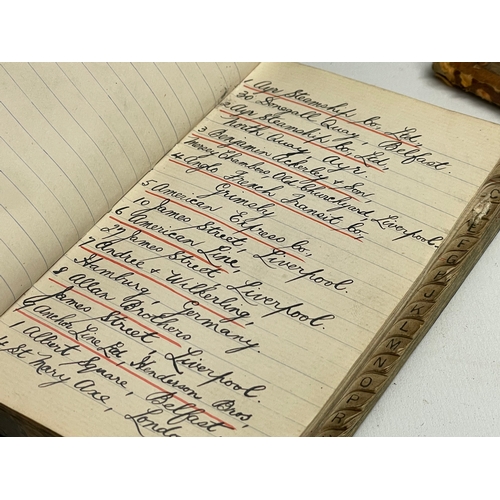 1 Ayr Steamship Co. Ltd,
30 Donegall Quay, Belfast.
2 Ayr Steamship Co. Ltd,
North Quay, Ayr.
3 Benjamin Ackerley & Son,
Mersey Chambers Old Churchyard, Liverpool.
4 Anglo French Transit Co,
Grimsby
5 American Express Co,
10 James Street, Liverpool.
6 American Line,
27 James Street, Liverpool.
7 Andrie & Wilkerling,
Hamburg, Germany.
8 Allan Brothers
James Street, Liverpool.
9 Anchor Line Henderson Bros,
1 Albert Square, Belfast
4 St Mary Axe, London
E
F
G
H
I
J
K
L
M
N
O
P
R